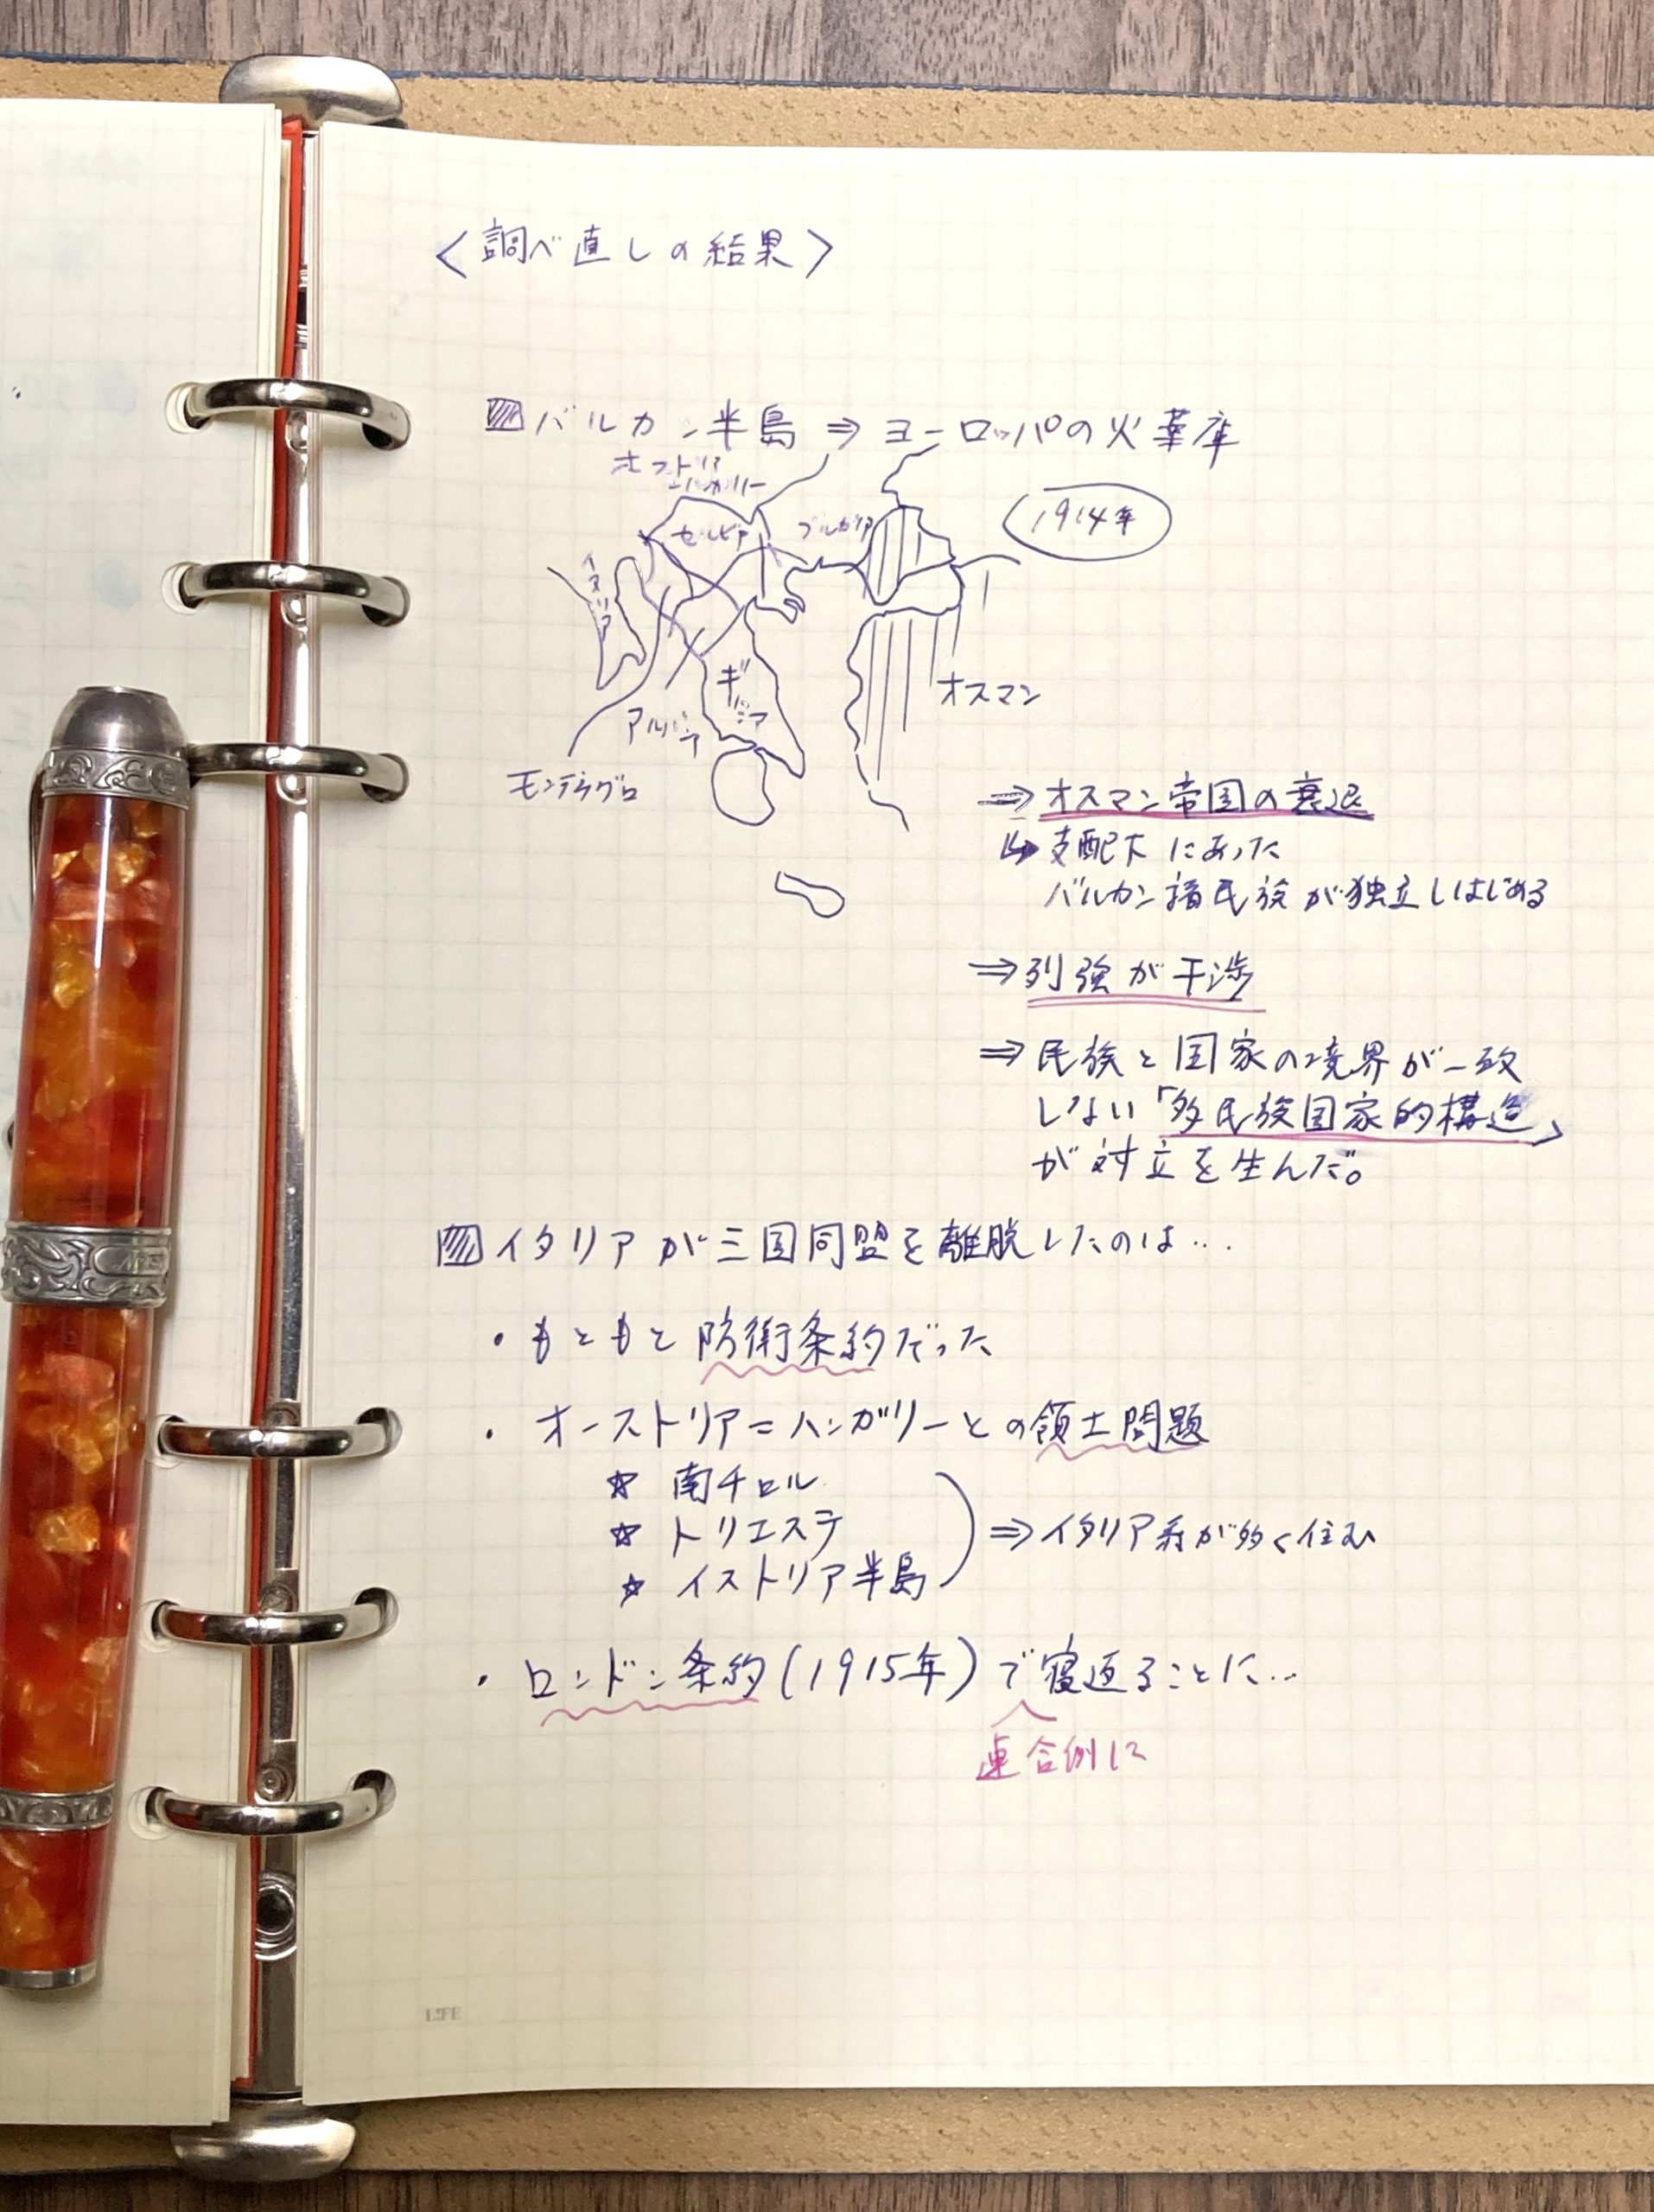 〈調べ直しの結果〉
バルカン半島 ⇒ ヨーロッパの火薬庫
オーストリア
ハンガリー
1914年
セルビア
ブルガリア
イタリア
ギリシア
オスマン
アルバニア
モンテネグロ
⇒ オスマン帝国の衰退
↳ 支配下にあった
バルカン諸民族が独立しはじめる
⇒ 列強が干渉
⇒ 民族と国家の境界が一致
しない「多民族国家的構造」
が対立を生んだ。
イタリアが三国同盟を離脱したのは…
・もともと防衛条約だった
・オーストリア=ハンガリーとの領土問題
☆ 南チロル
☆ トリエステ
☆ イストリア半島
⇒ イタリア系が多く住む
・ロンドン条約(1915年)で寝返ることに…
連合側に
LIFE